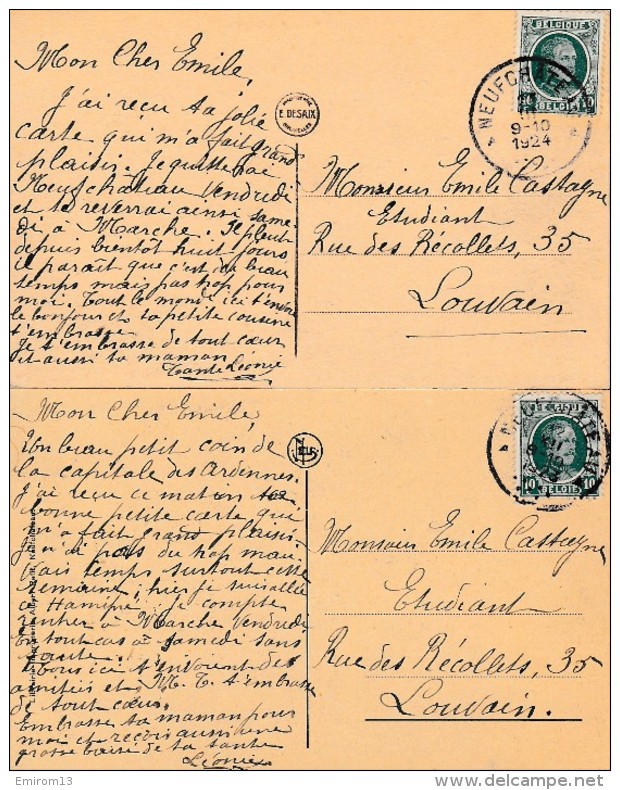 Mon Cher Emile,
J'ai reçu ta jolie
carte qui m'a fait grand
plaisir. Je quitterai
Neufchâteau Vendredi
et te reverrai ainsi same-
di à Marche. Il pleut
depuis bientôt huit jours
il paraît que c'est du beau
temps mais pas trop pour
moi. Tout le monde ici t'envoie
le bonjour et ta petite cousine
t'embrasse
Je t'embrasse de tout cœur
et aussi ta maman
Tante Léonie
E. DESAIX
BELGIQUE
BELGIE
10
NEUFCHATEAU
9-10
1924
Monsieur Emile Castagne
Etudiant
Rue des Récollets, 35
Louvain
Mon Cher Emile,
Un beau petit coin de
la capitale des Ardennes.
J'ai reçu ce matin ta
bonne petite carte que
m'a fait grand plaisir
Je n'ai pas du trop mau-
vais temps surtout cette
semaine; hier je suis allée
à Hamipré. Je compte
rentrer à Marche Vendredi
En tout cas à Samedi sans
faute.
Tous ici t'envoient des
amitiés et M. T. t'embrasse
de tout cœur.
Embrasse ta maman pour
moi et reçois aussi une
grosse baise de ta tante
Léonie
BELGIQUE
10 BELGIE 10
Monsieur Emile Castagne
Etudiant
Rue des Récollets, 35
Louvain.
Emirom13
delcampe.net